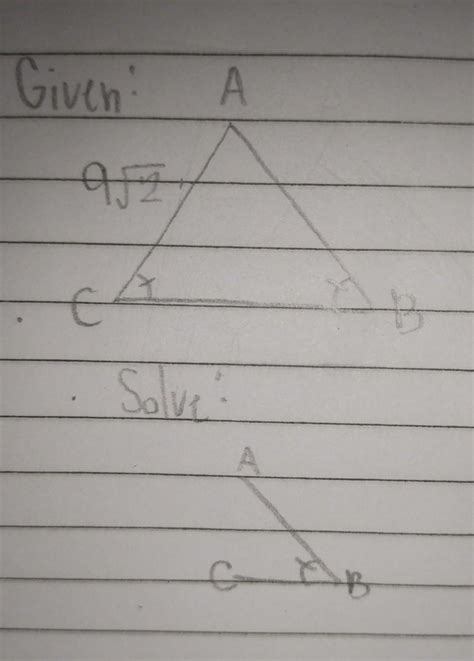 Given:
A
9√2
C
B
Solve:
A
C
B